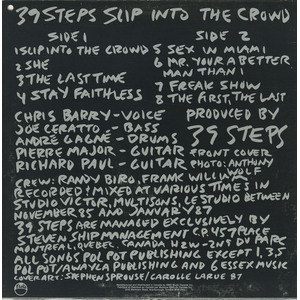 39 STEPS SLIP INTO THE CROWD
SIDE 1
SIDE 2
1 SLIP INTO THE CROWD
2 SHE
3 THE LAST TIME
4 STAY FAITHLESS
5 SEX IN MIAMI
6 MR. YOUR A BETTER
MAN THAN I
7 FREAK SHOW
8 THE FIRST, THE LAST
CHRIS BARRY-VOICE
JOE CERATTO - BASS
ANDRÉ GAGNE - DRUMS
PIERRE MAJOR - GUITAR
RICHARD PAUL - GUITAR
PRODUCED BY
39 STEPS
FRONT COVER
PHOTO: ANTHONY
WOLF
CREW: RANDY BIRO, FRANK WILLIAR
RECORDED / MIXED AT VARIOUS TIMES IN
STUDIO VICTOR, MULTISONS, LE STUDIO BETWEEN
NOVEMBER 85 AND JANVARY 87
39 STEPS ARE MANAGED EXCLUSIVELY BY
STEVEN SHIP MANAGEMENT C.P. 457 PLACE
MONTREAL, QUEBEC. CANADA H2W-2N1 DU PARC
ALL SONGS POL POT PUBLISHING EXCEPT 1,3,5
POL POT/AWAYLA PUBLISHING AND 6 ESSEX MUSIC
COVER ART: STEPHEN SPROUSE/CAROLLE LARUE 87